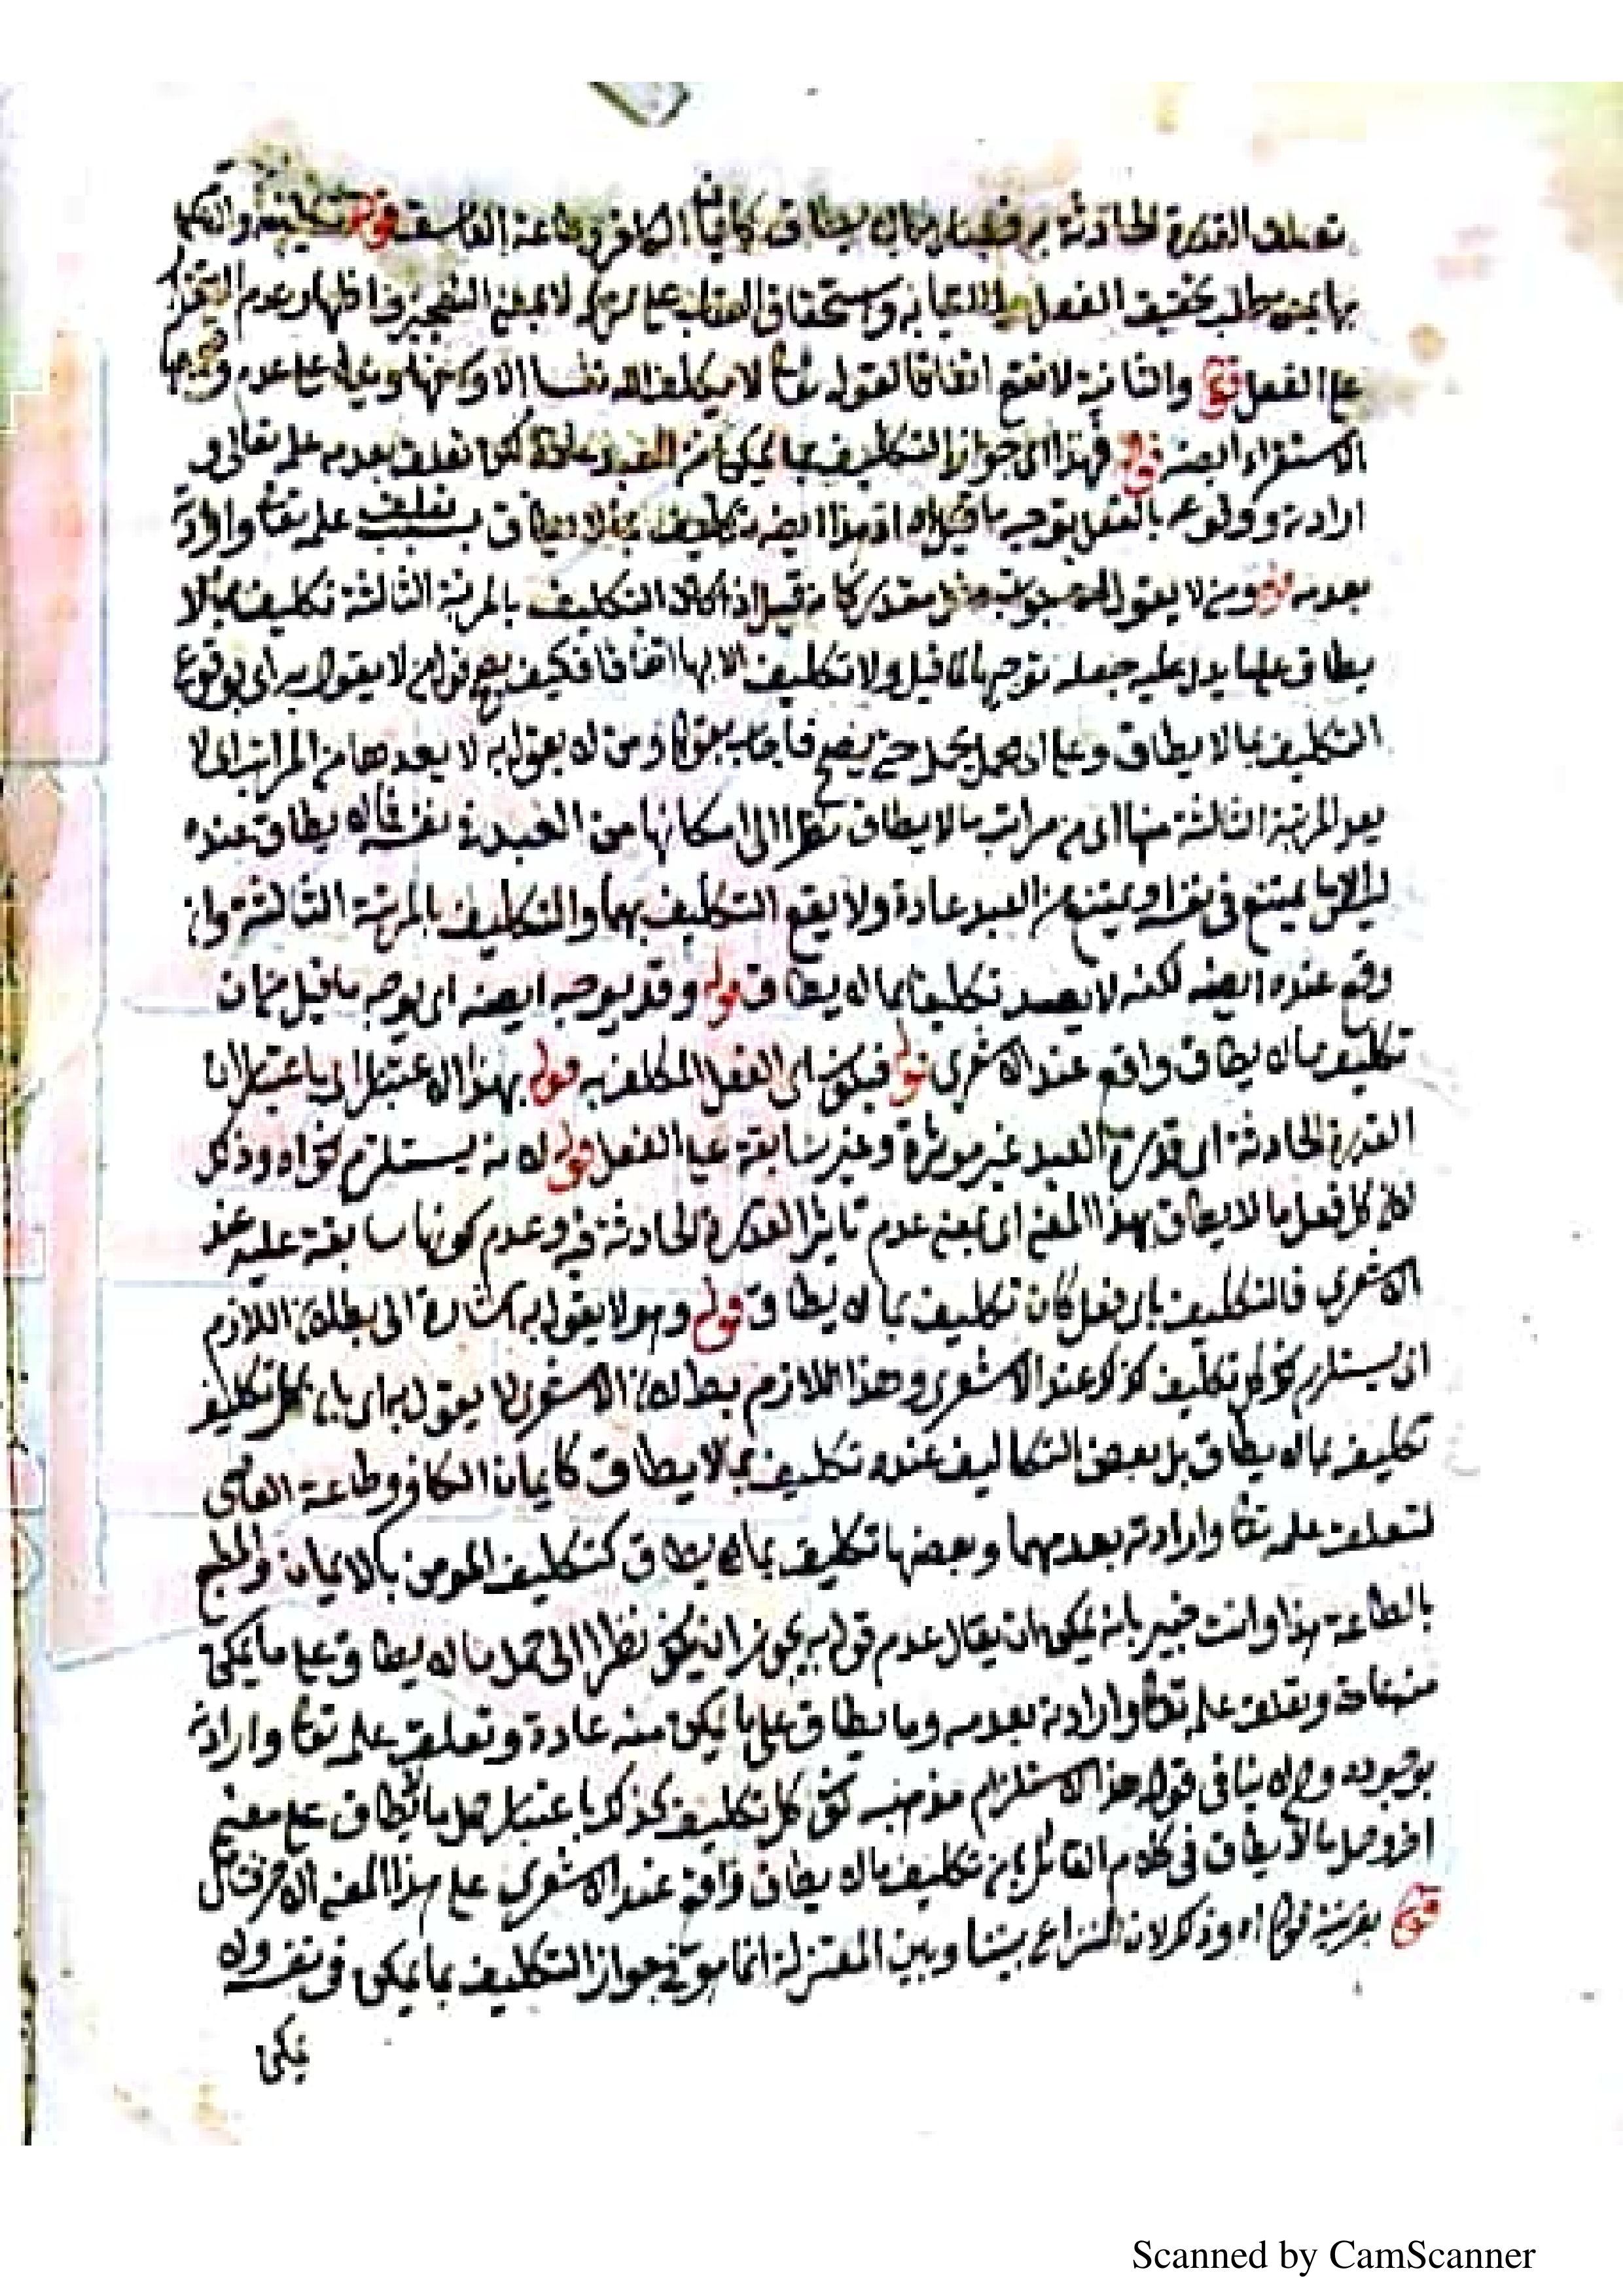 تعلق القدرة الحادثة به فيما لا يطاق كايمان الكافر وطاعة الفاسق قوله تكليفه والتكليف
بها بمعنى طلب تحقيق الفعل والاتيان به واستحقاق العقاب على تركه لا بمعنى التعجيز واظهار عدم
على الفعل قوله والثانية لا تقع اتفاقا لقوله تعا لا يكلف الله نفسا الا وسعها ويدل على عدم وقوعها
الاستقراء ايضه قوله فهذا اى جواز التكليف بما يمكن من العبد عادة لكن تعلق بعدمه علمه تعالى و
ارادته ووقوعه بالفعل يوجه ما قيل اه اذ هذا ايضه تكليف بما لا يطاق بسبب تعلق علمه تعا وارادته
بعدمه قوله ومن لا يقول اه جواب سؤال مقدر كانه قيل اذا كان التكليف بالمرتبة الثالثة تكليف بما لا
يطاق على ما يدل عليه جعله توجيها لما قيل ولا تكليف الا بها اتفاقا فكيف يصح قوله من لا يقول به اى بوقوع
التكليف بما لا يطاق وعلى اى محمل يحمل حتى يصح فاجاب بقوله ومن لا يقول به لا يعدها من المراتب اى لا
يعد المرتبة الثالثة منها اى من مراتب ما لا يطاق نظرا الى امكانها من العبد في نفسه فما لا يطاق عنده
ليس الا ما يمتنع فى نفسه او يمتنع من العبد عادة ولا يقع التكليف بهما والتكليف بالمرتبة الثالثة وان
وقع عنده ايضه لكنه لا يعد تكليفا بما لا يطاق قوله وقد يوجه ايضه اى يوجه ما قيل من ان
تكليف ما لا يطاق واقع عند الاشعرى قوله فيكون اى الفعل المكلف به قوله بهذا الاعتبار اى باعتبار ان
القدرة الحادثة اى قدرة العبد غير مؤثرة وغير سابقة على الفعل قوله لانه يستلزم كون اه وذلك
لان كل فعل ما لا يطاق بهذا المعنى اى بمعنى عدم تاثير القدرة الحادثة فيه وعدم كونها سابقة عليه عند
الاشعرى فالتكليف باى فعل كان تكليف بما لا يطاق قوله وهو لا يقول به اشارة الى بطلان اللازم
اى يستلزم كون كل تكليف كذلك عند الاشعرى وهذا اللازم بط لان الاشعرى لا يقول به اى بان كل تكليف
تكليف بما لا يطاق بل بعض التكاليف عنده تكليف بما لا يطاق كايمان الكافر وطاعة العاصى
لتعلق علمه تعا وارادته بعدمهما وبعضها تكليف بما يطاق كتكليف المومن بالايمان والمطيع
بالطاعة هذا وانت خبير بانه يمكن ان يقال عدم قوله به يجوز ان يكون نظرا الى حمل ما لا يطاق على ما يمكن
منه عادة وتعلق علمه تعا وارادته بعدمه وما يطاق على ما يمكن منه عادة وتعلق علمه تعا وارادته
بوجوده وح لا ينافى قوله هذا استلزام مذهبه كون كل تكليف كذلك باعتبار حمل ما لا يطاق على معنى
اخر وحمل ما لا يطاق فى كلام القائل بان تكليف ما لا يطاق واقع عند الاشعرى على هذا المعنى الاخر فتامل
قوله بقرينة قوله اه وذلك لان النزاع بيننا وبين المعتزلة انما هو فى جواز التكليف بما يمكن فى نفسه ولا
يمكن
Scanned by CamScanner